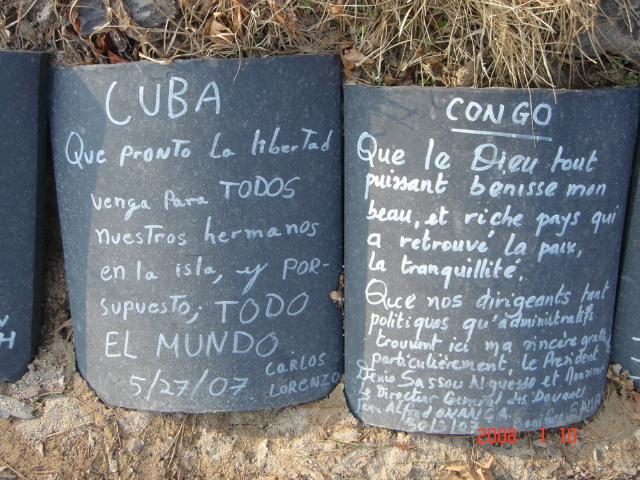 CUBA
Que pronto la libertad
venga para TODOS
nuestros hermanos
en la isla, y POR-
supuesto, TODO
EL MUNDO
5/27/07 CARLOS
LORENZO
CONGO
Que le Dieu tout
puissant benisse mon
beau, et riche pays qui
a retrouvé la paix,
la tranquillité.
Que nos dirigeants tant
politiques qu'administratifs
trouvent ici ma sincère
particulièrement, le President
Denis Sassou Nguesso et Monsieur
Le Directeur General des Douanes
Jean Alfred ONANGA
H
2008 1 10